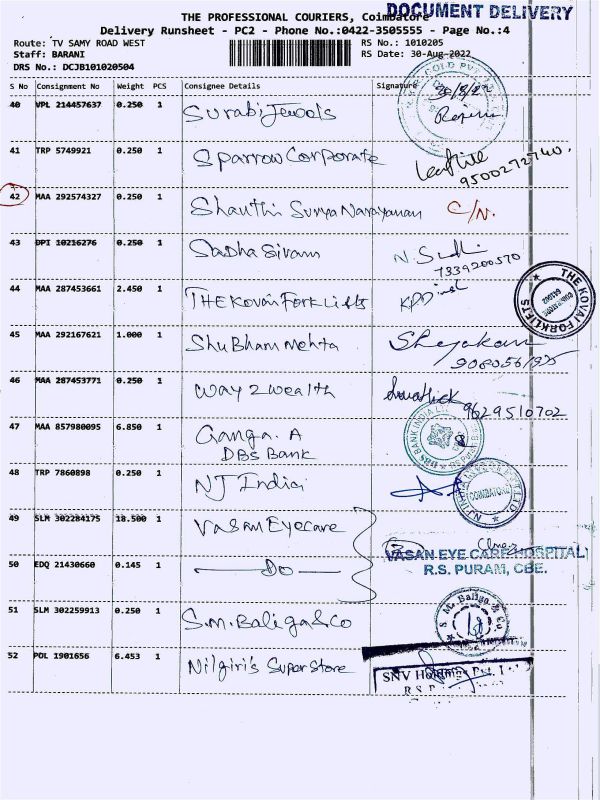 DOCUMENT DELIVERY
THE PROFESSIONAL COURIERS, Coimbatore
Delivery Runsheet - PC2 - Phone No.:0422-3505555 - Page No.:4
Route: TV SAMY ROAD WEST
RS No.: 1010205
Staff: BARANI
RS Date: 30-Aug-2022
DRS No.: DCJB101020504
S No Consignment No Weight PCS Consignee Details Signature
40 VPL 214457637 0.250 1 Surabi Jewels
41 TRP 5749921 0.250 1 Sparrow Corporate
9500272740.
42 MAA 292574327 0.250 1 Shanthi Surya Narayanan C/N.
43 DPI 10216276 0.250 1 Sadha Sivam
7339200570
44 MAA 287453661 2.450 1 THE Kovai Forklifts
THE KOVAI FORKLIFTS
45 MAA 292167621 1.000 1 Shubham Mehta
46 MAA 287453771 0.250 1 Way 2 wealth
9629510702
47 MAA 857980095 6.850 1 Ganga. A
DBS Bank
DBS BANK INDIA
48 TRP 7860898 0.250 1 NJ India
COIMBATORE
49 SLM 302284175 18.500 1 Vasan Eyecare
VASAN EYE CARE HOSPITAL
R.S. PURAM, CBE.
50 EDQ 21430660 0.145 1 Do
51 SLM 302259913 0.250 1 S.M. Baliga & Co
S. M. Baliga & Co.
52 POL 1901656 6.453 1 Nilgiri's Super Store
SNV Holdings Pvt.
R S